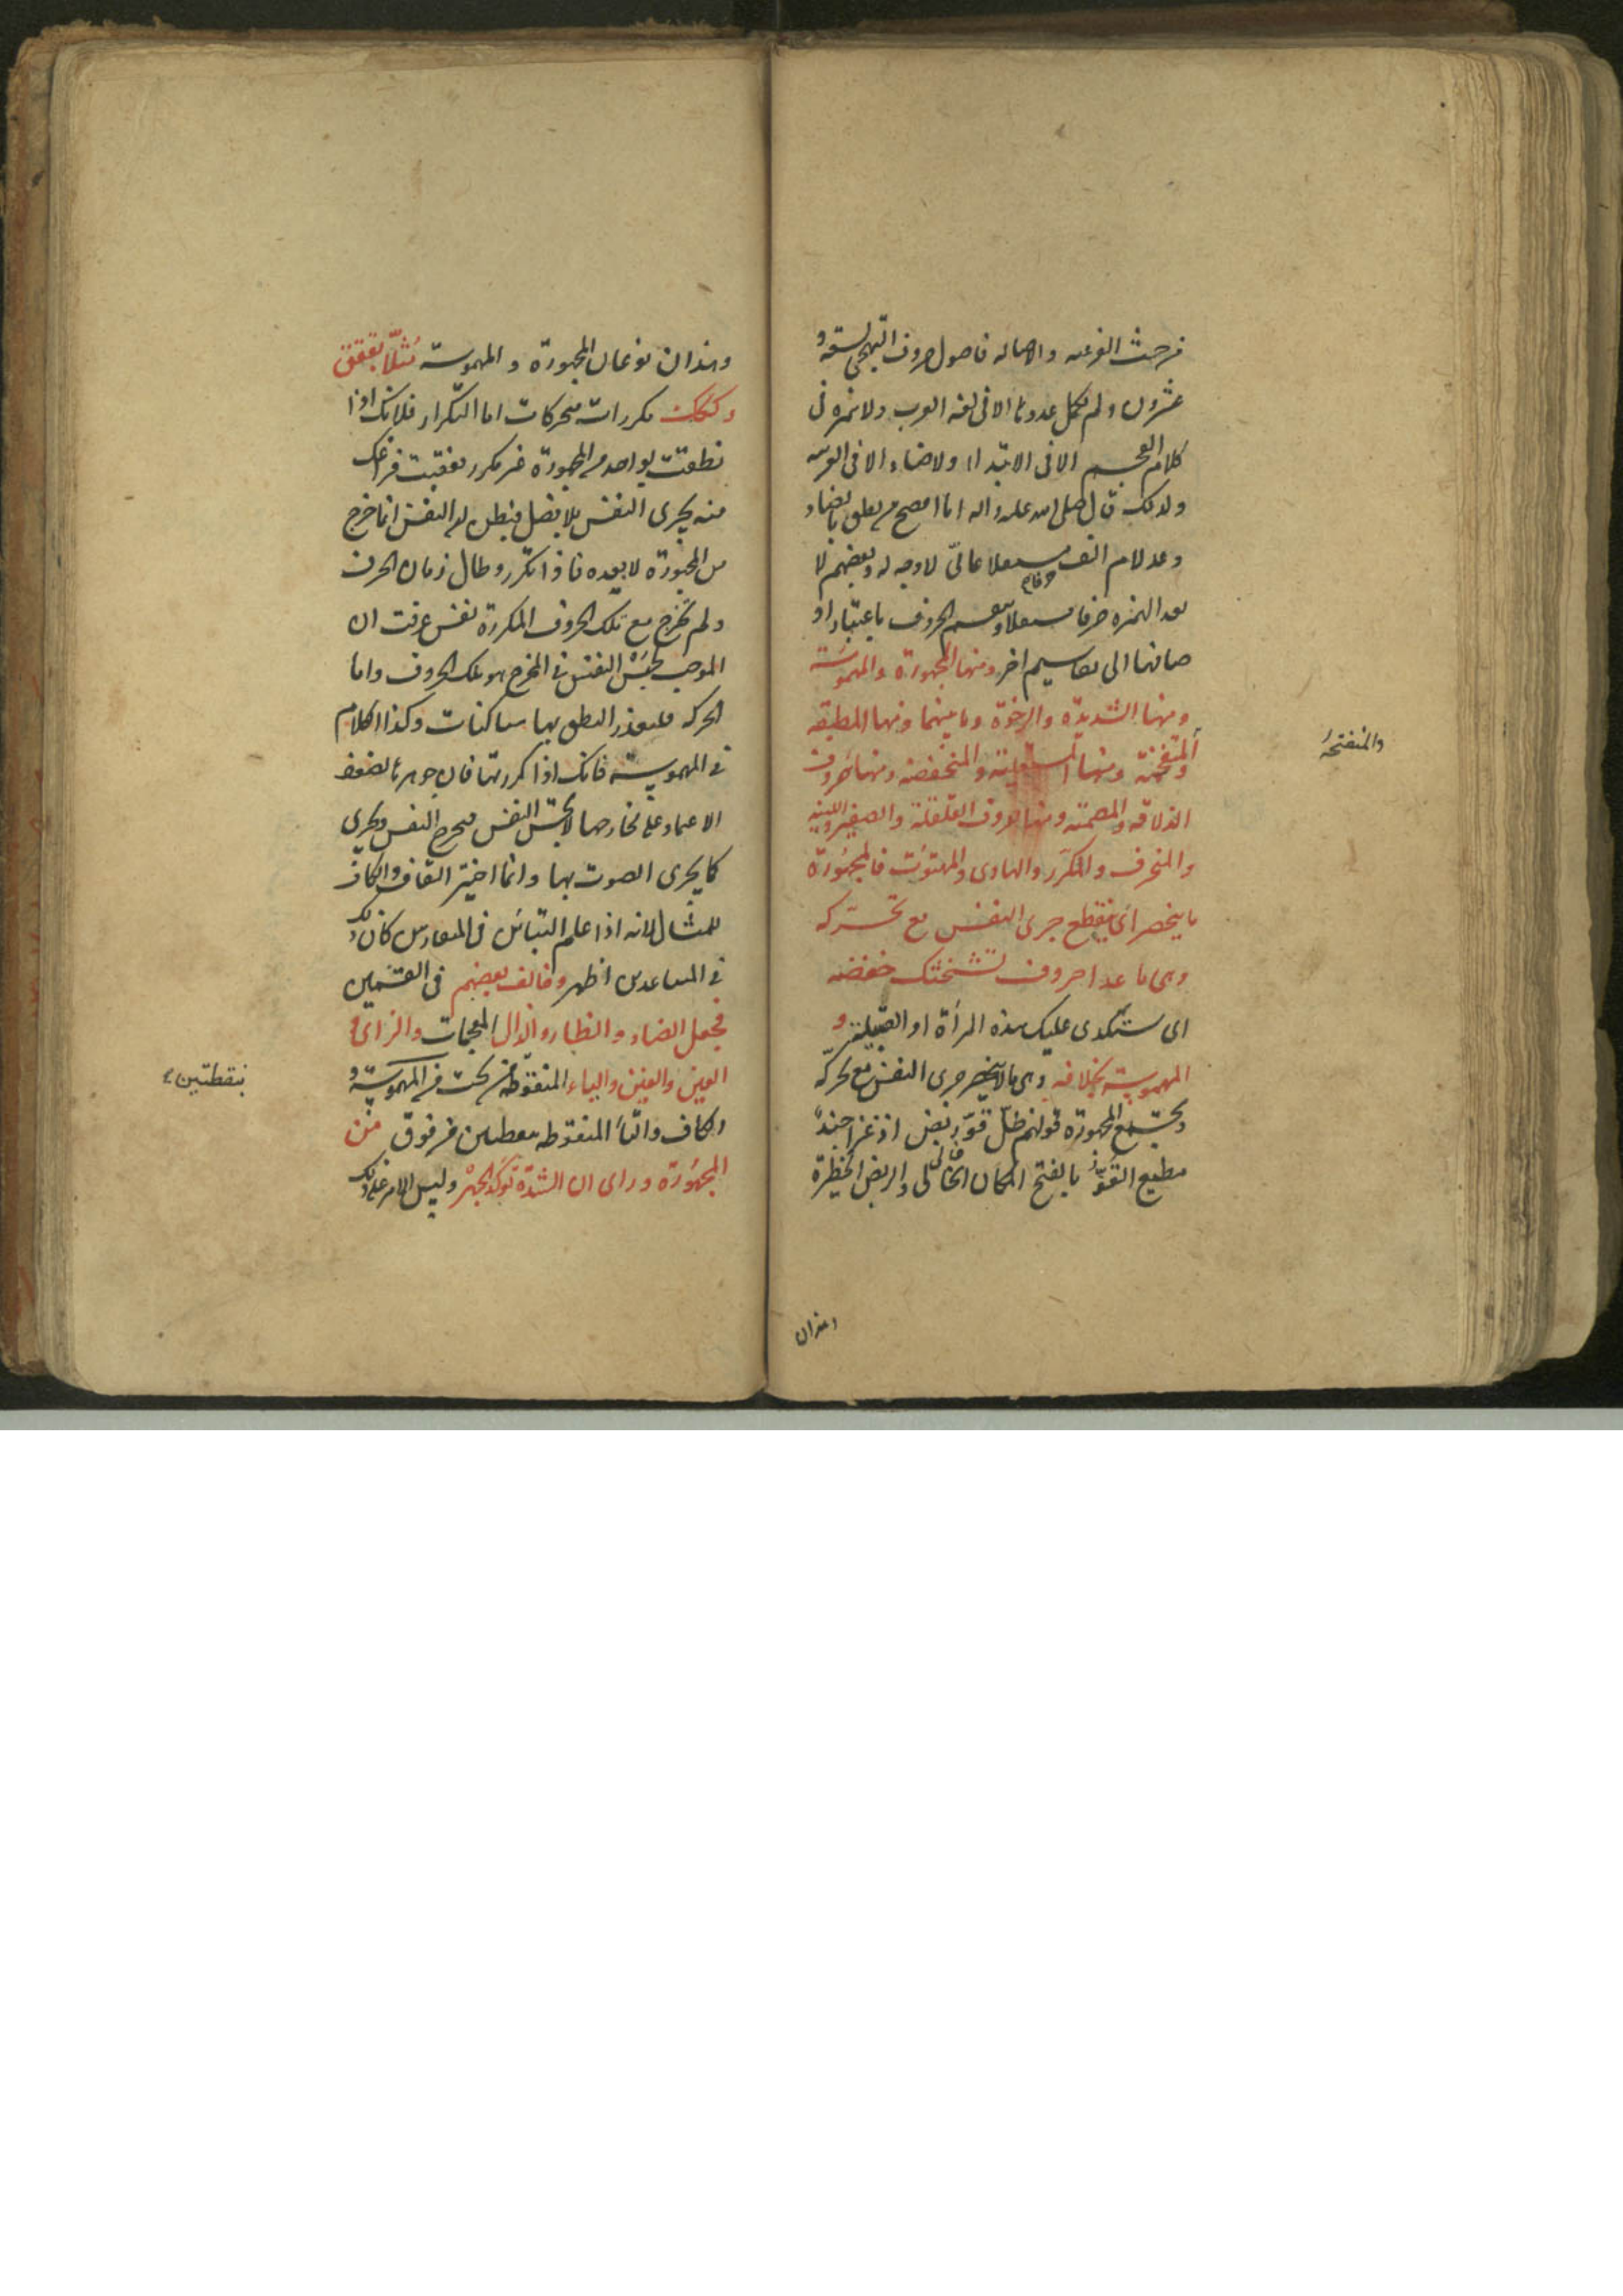 من حيث الفرعيه والاصاله فاصول حروف التهجى تسعة و
عشرون ولم يكمل عددها الا فى لغه العرب ولا همزه فى
كلام العجم الا فى الابتداء ولا ضاد الا فى العربيه
ولذلك قال صلى الله عليه واله انا افصح من نطق بالضاد
وعد لام الف مستقلا عامىّ لا وجه له وبعضهم لا
يعد الهمزه حرفا مستقلا وينقسم الحروف باعتبار او
صافها الى تقاسيم اخر ومنها المجهورة والمهموسة
ومنها الشديدة والرخوة وما بينهما ومنها المطبقه
والمنفتحة ومنها المستعلية والمنخفضه ومنها حروف
والمنفتحة
الذلاقه والمصمته ومنها حروف القلقلة والصفير واللينه
والمنحرف والمكرر والهاوى والمهتوت فالمجهورة
ما ينحصر اى ينقطع جرى النفس مع تحركه
وهى ما عدا حروف تستشحثك خصفه
اى ستكدى عليك هذه المرأة او القبيلة و
المهموسة بخلافه وهى ما لا ينحصر جرى النفس مع تحركه
ويجمع المجهورة قولهم ظل قوّ ربض اذ غزا جند
مطيع القوّ بالفتح المكان الخالى والربض الحظيرة
وهذان
وهذان نوعان المجهورة والمهموسة مثلا بققق
وككك مكررات متحركات اما التكرار فلانك اذا
نطقت بواحد من المجهورة غير مكرر تعقبت فراغك
منه يجرى النفس بلا فصل فيظن ان النفس انما خرج
من المجهورة لا بعده فاذا تكرر وطال زمان الحرف
ولم يخرج مع تلك الحروف المكررة نفس عرفت ان
الموجب لحبس النفس فى المخرج هو تلك الحروف واما
الحركه فلتعذر النطق بها ساكنات وكذا الكلام
فى المهموسة فانك اذا كررتها فان جوهرها لضعف
الاعتماد على مخارجها لا يحبس النفس فيخرج النفس ويجرى
كما يجرى الصوت بها وانما اختير القاف والكاف
للمثال لانه اذا علم التباين فى المتقاربين كان ذلك
فى المتباعدين اظهر وخالف بعضهم فى القسمين
فجعل الضاد والظاء والذال المعجمات والزاى و
العين والغين والياء المنقوطه من تحت من المهموسة و
بنقطتين
الكاف والتاء المنقوطه بنقطتين من فوق من
المجهورة وراى ان الشدة تؤكد الجهر وليس الامر على ذلك